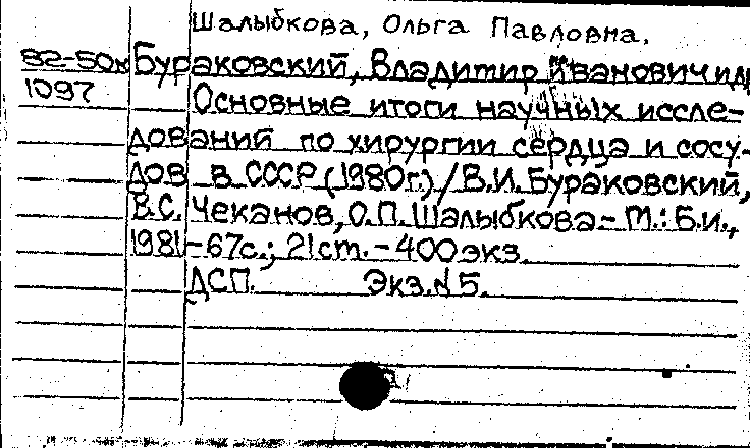 Шалыбкова, Ольга Павловна.
82-50к Бураковский, Владимир Иванович и др
1097 Основные итоги научных иссле-
дований по хирургии сердца и сосу-
дов в СССР (1980г.)/В.И.Бураковский,
В.С. Чеканов, О.П.Шалыбкова.- М.: Б.и.,
1981.-67с.; 21cm. - 400экз.
ДСП. Экз.№5.